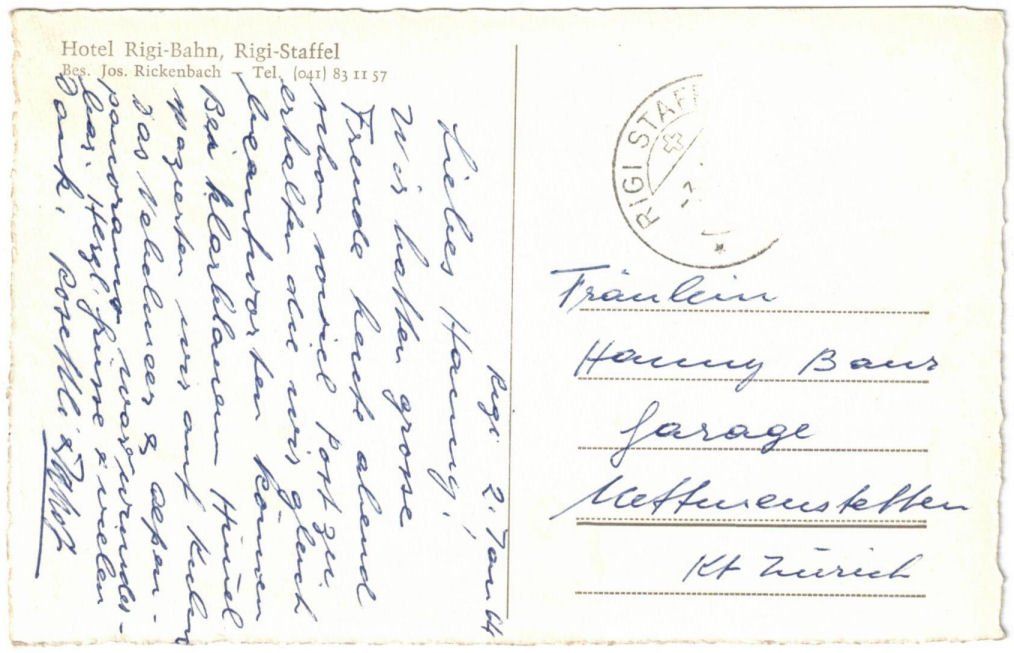 Hotel Rigi-Bahn, Rigi-Staffel
Bes. Jos. Rickenbach – Tel. (041) 83 11 57
Rigi 2. Jan 64
Liebes Hanny!
Wir hatten grosse
Freude heute abend
schon soviel Post zu
erhalten die wir gleich
beantworten können
Bei klarblauem Himmel
spazierten wir auf Kulm
das Nebelmeer & Alpen-
panorama war wunder-
bar. Herzl. Grüsse & vielen
Dank.
RIGI STAFF
Fräulein
Hanny Baur
Garage
Mettmenstetten
Kt Zürich